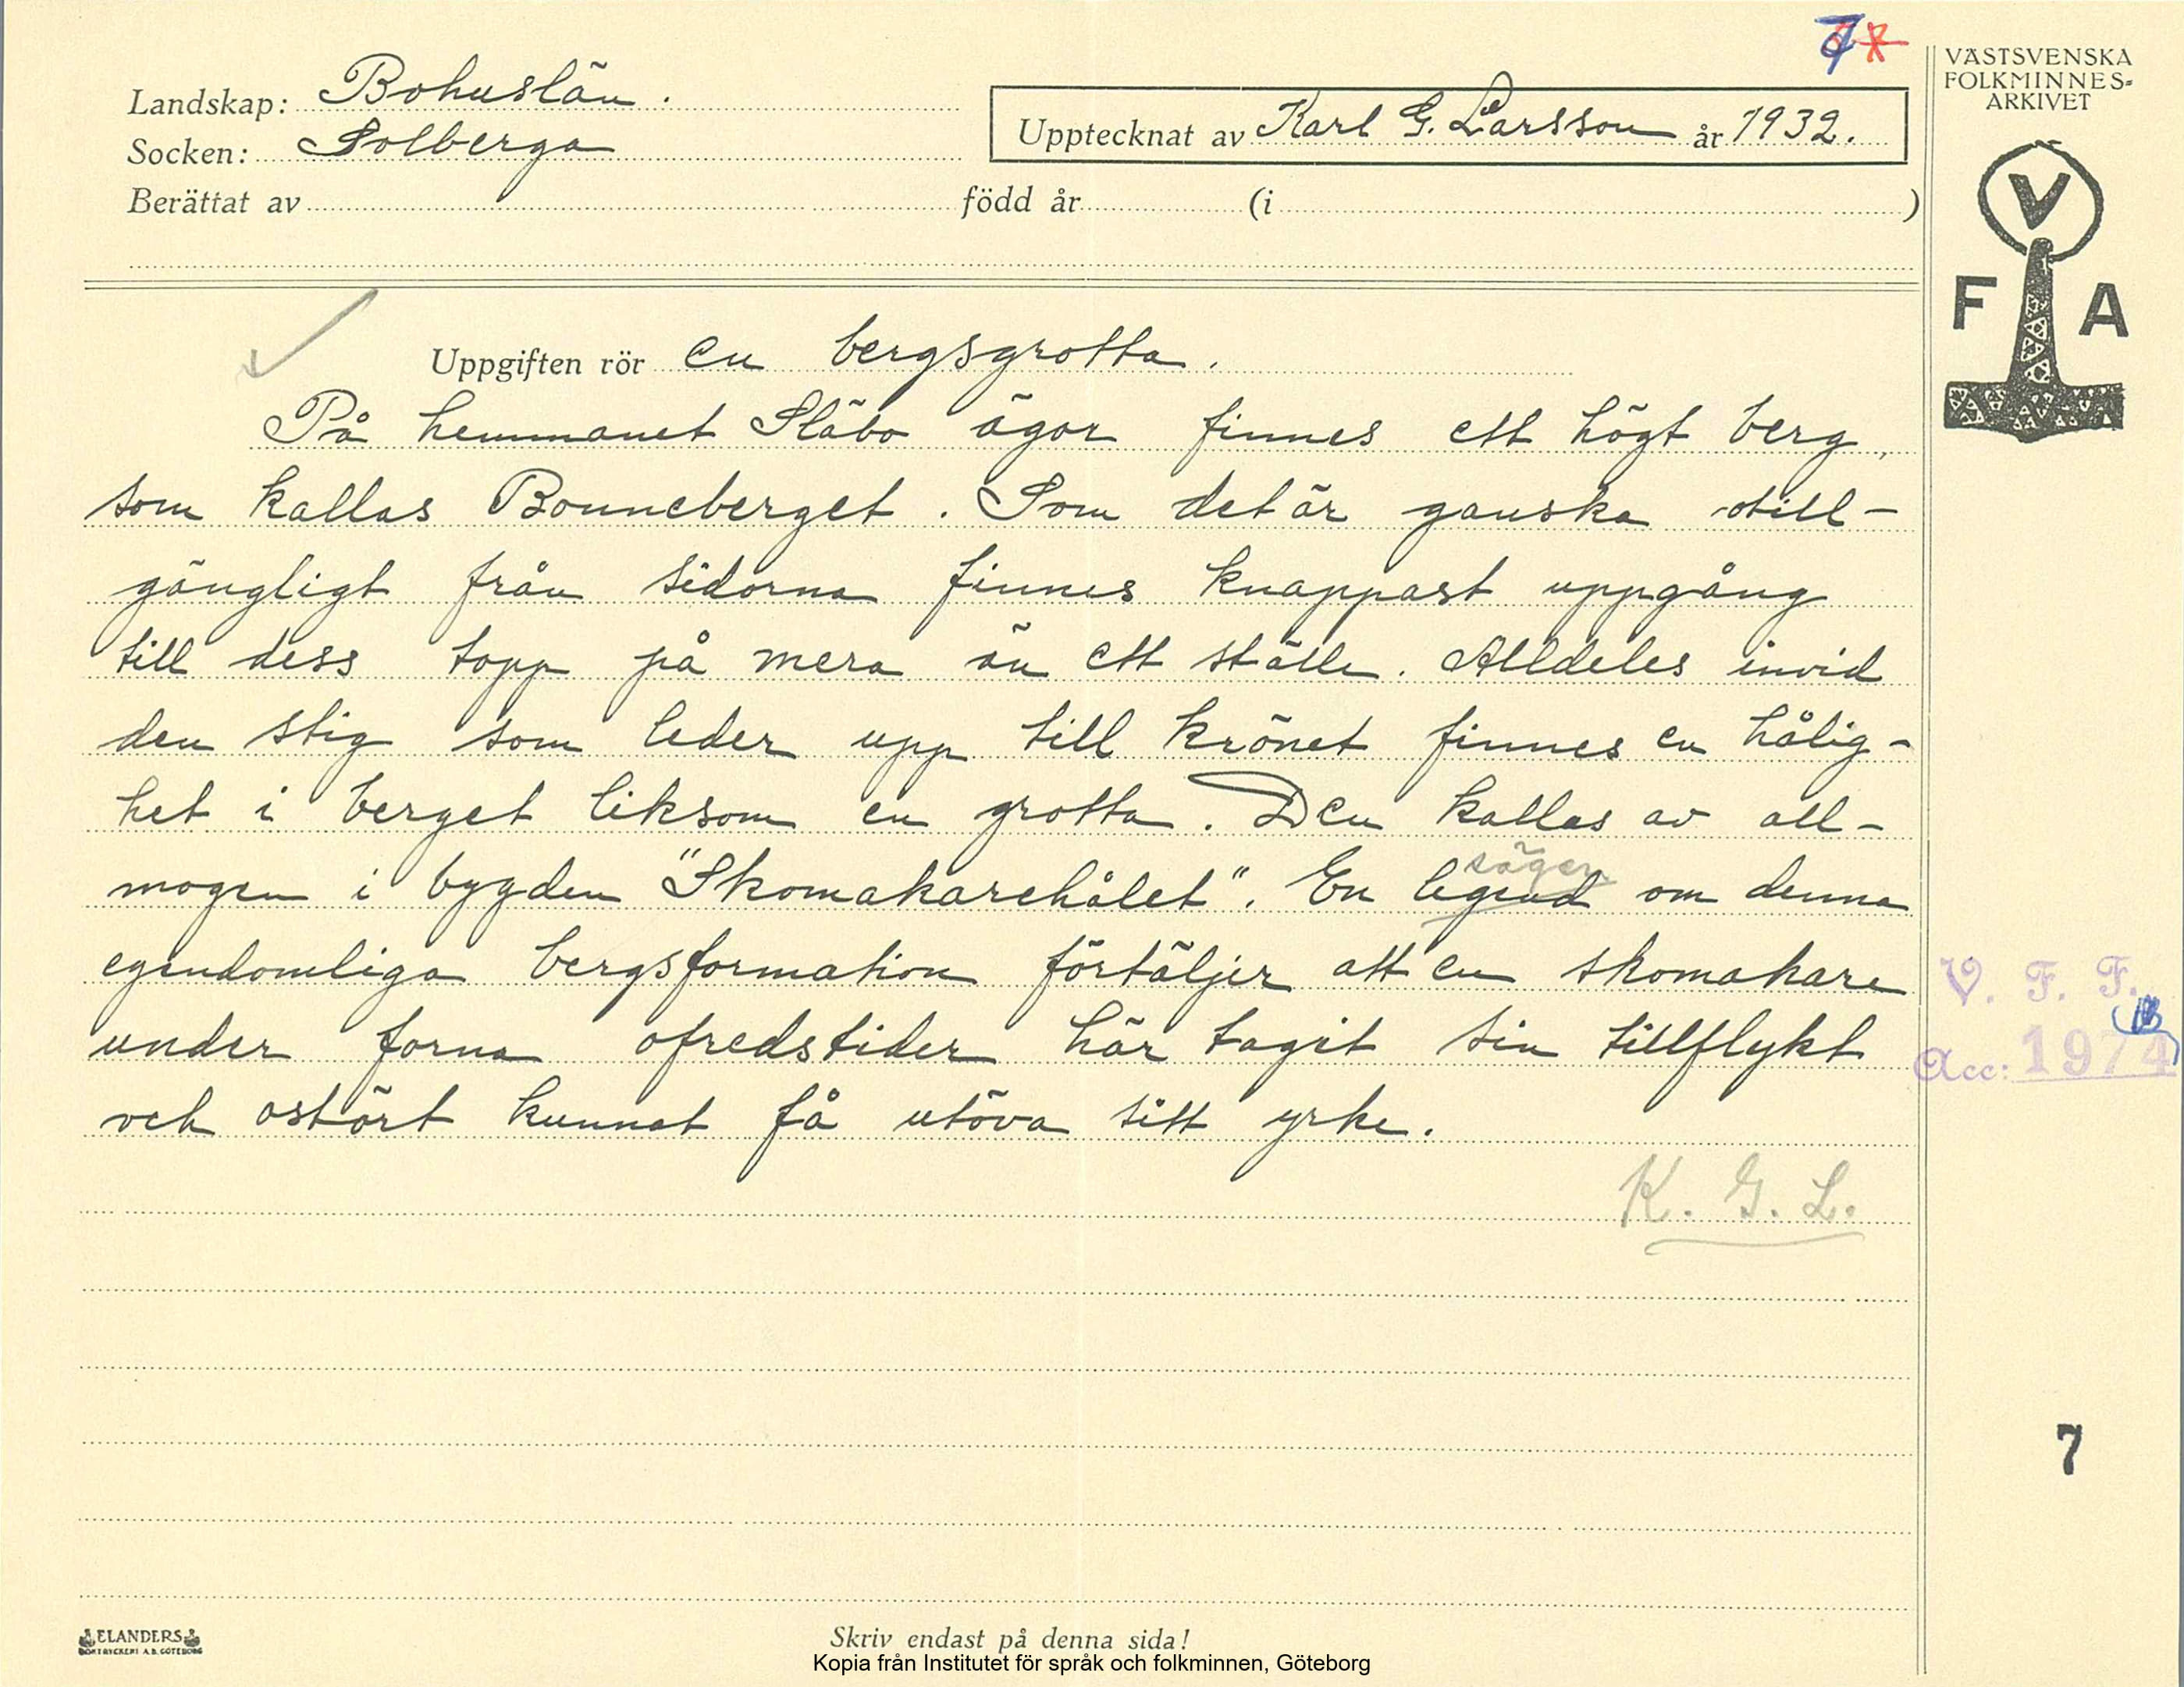 7
VÄSTSVENSKA
FOLKMINNES-
ARKIVET
Landskap: Bohuslän.
Upptecknat av Karl G. Larsson år 1932.
Socken: Solberga
Berättat av född år (i )
V
F A
Uppgiften rör en bergsgrotta.
På hemmanet Släbo ägor finnes ett högt berg,
som kallas Bonneberget. Som det är ganska otill-
gängligt från sidorna finnes knappast uppgång
till dess topp på mera än ett ställe. Alldeles invid
den stig som leder upp till krönet finnes en hålig-
het i berget liksom en grotta. Den kallas av all-
sägen
mogen i bygden "Skomakarehålet". En legend om denna
egendomliga bergsformation förtäljer att en skomakare
under forna ofredstider här tagit sin tillflykt
och ostört kunnat få utöva sitt yrke.
V. F. F.
Acc: 1974
K. G. L.
7
ELANDERS
BOKTRYCKERI A.B. GÖTEBORG
Skriv endast på denna sida!
Kopia från Institutet för språk och folkminnen, Göteborg